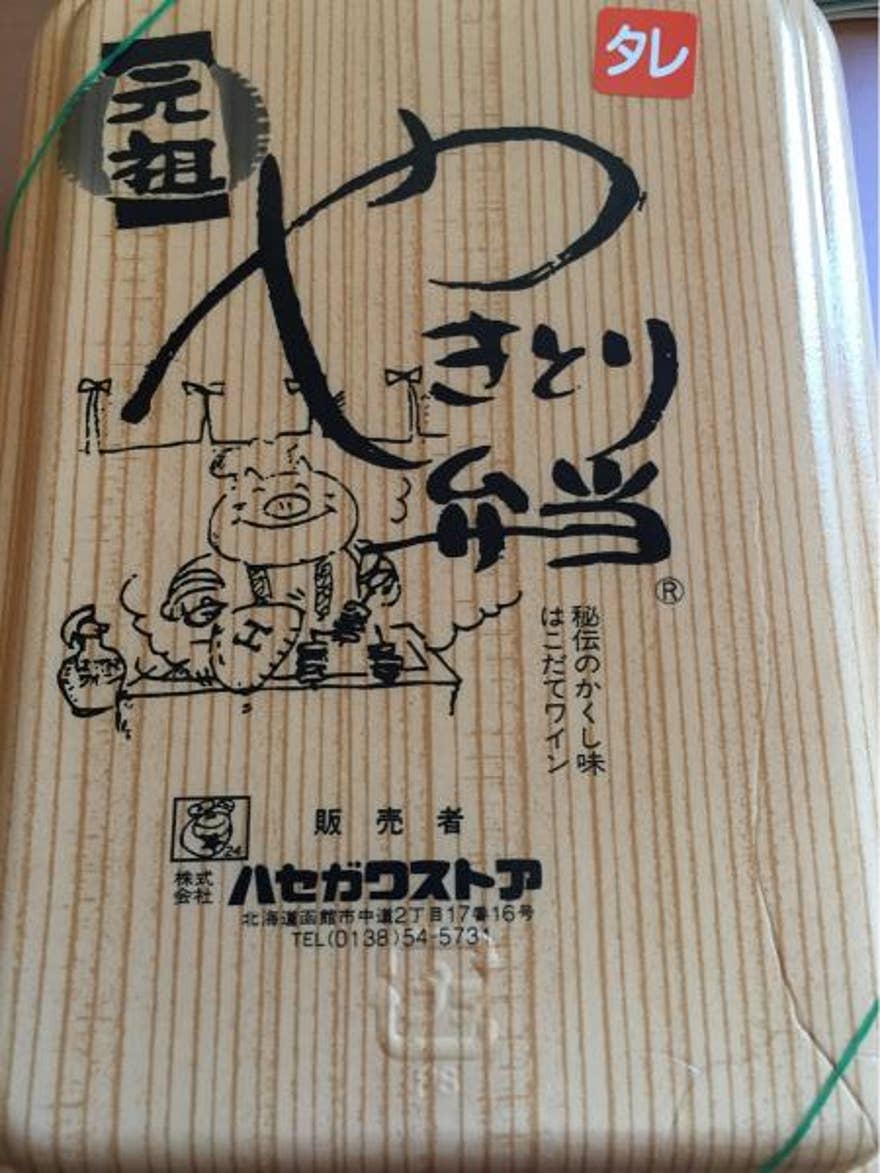 タレ
元祖
やきとり
弁当
®
秘伝のかくし味
はこだてワイン
H
24
販売者
株式会社 ハセガワストア
北海道函館市中道2丁目17番16号
TEL(0138)54-5731
プラ
PS